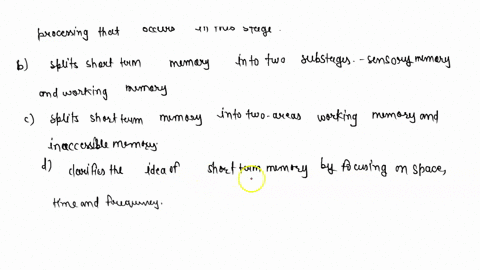 processing that occurs in this stage.
b) splits short term memory into two substages. - sensory memory
and working memory
c) splits short term memory into two-areas working memory and
inaccessible memory
d) clarifies the idea of short term memory by focusing on space,
time and frequency.